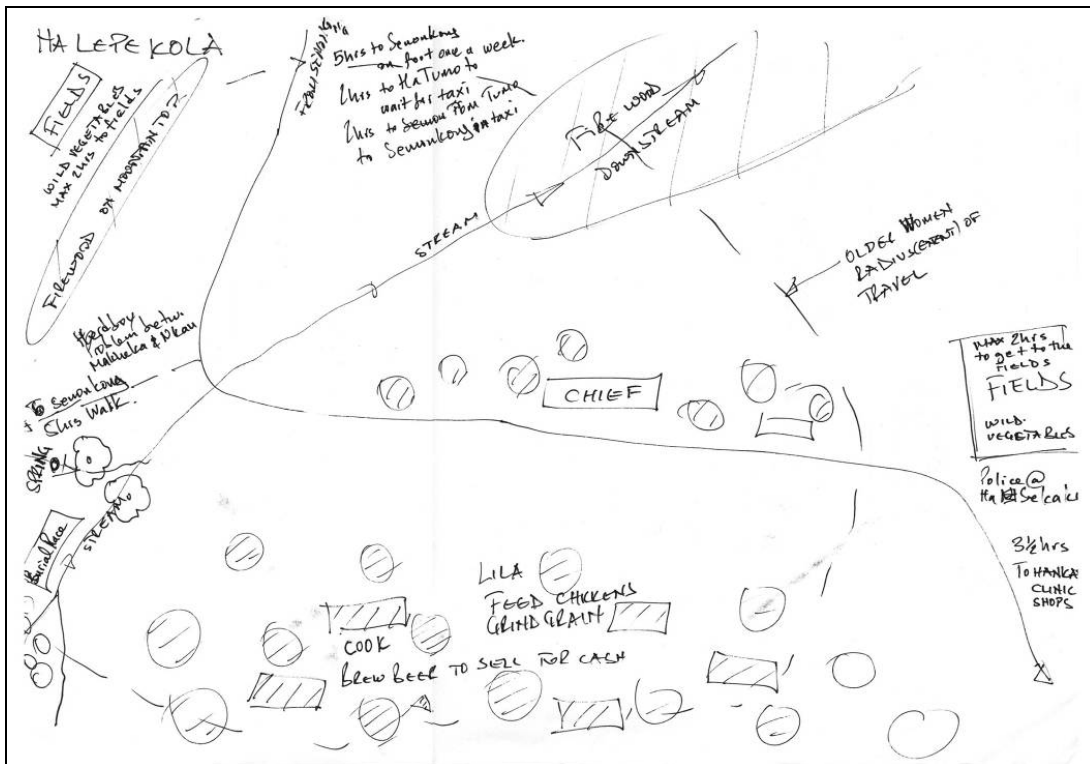 HA LEPEKOLA
FIELDS
WILD VEGETABLES
MAX 2hrs to fields
FIREWOOD ON MOUNTAIN TOP
5hrs to Semonkong
on foot one a week.
2hrs to Ha Tumo to
wait for taxi
2hrs to Semon from Tumo
to Semonkong in taxi
FIREWOOD
DOWNSTREAM
STREAM
OLDER WOMEN
RADIUS (EXTENT) OF
TRAVEL
Herdboy
problem betw.
& Nkau
To Semonkong
5hrs walk.
SPRING
STREAM
Burial Place
CHIEF
MAX 2hrs
to get to the
FIELDS
FIELDS
WILD
VEGETABLES
Police @
Ha
3½hrs
TO HANKA
CLINIC
SHOPS
LILA
FEED CHICKENS
GRIND GRAIN
COOK
BREW BEER TO SELL FOR CASH